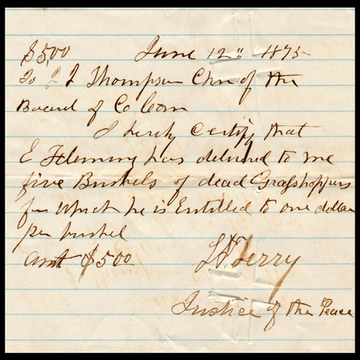 $5,00 June 12" 1875
To J J Thompson Chn of the
Board of Co Com
I herby Certify that
E Flemming has deliverd to me
five Bushels of dead Grasshoppers
for Which he is Entitled to one dollar
per bushel
amt $5.00
Terry
Justice of the Peace